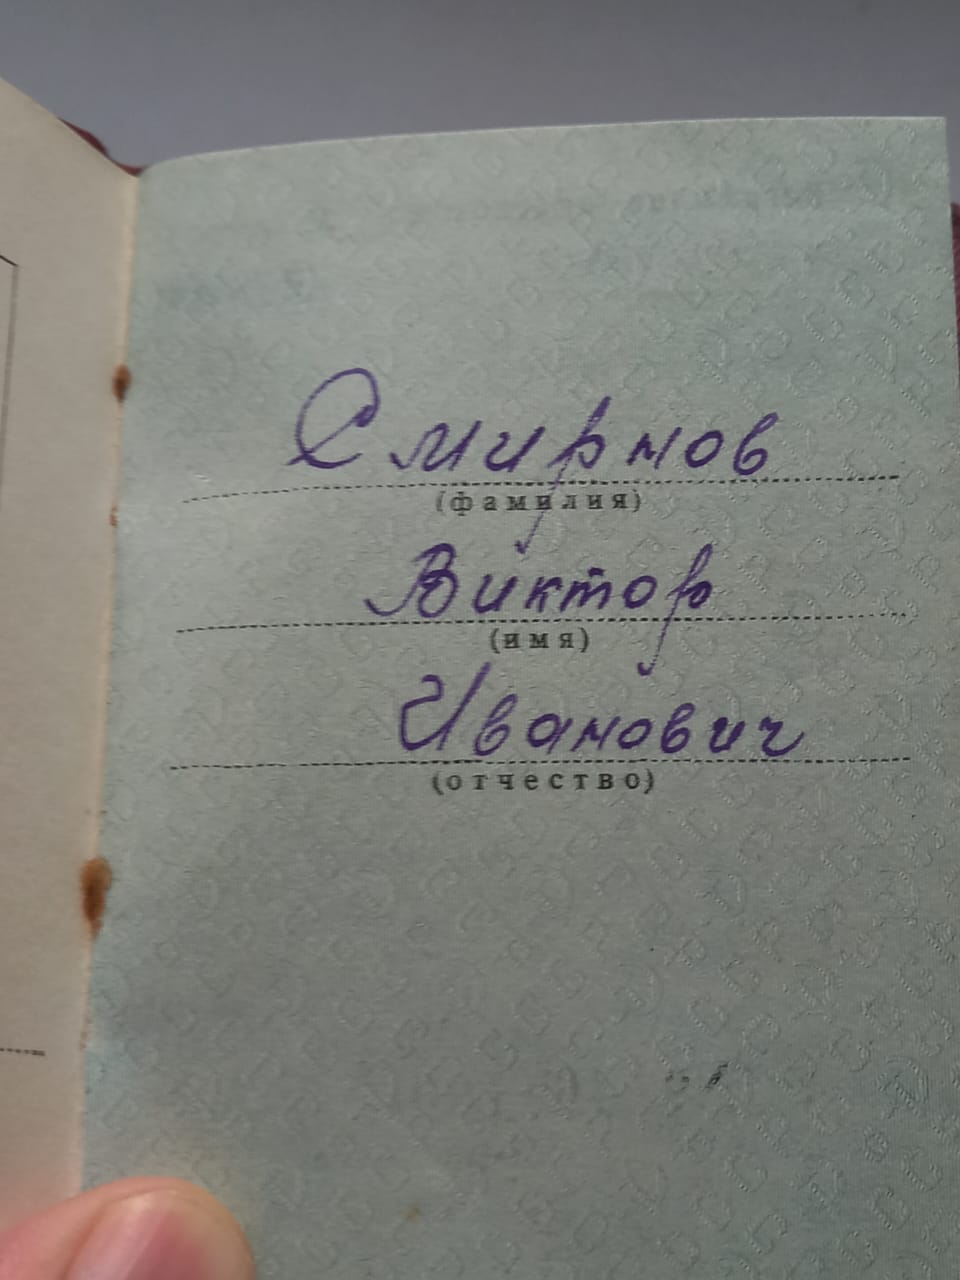 Смирнов
(фамилия)
Виктор
(имя)
Иванович
(отчество)